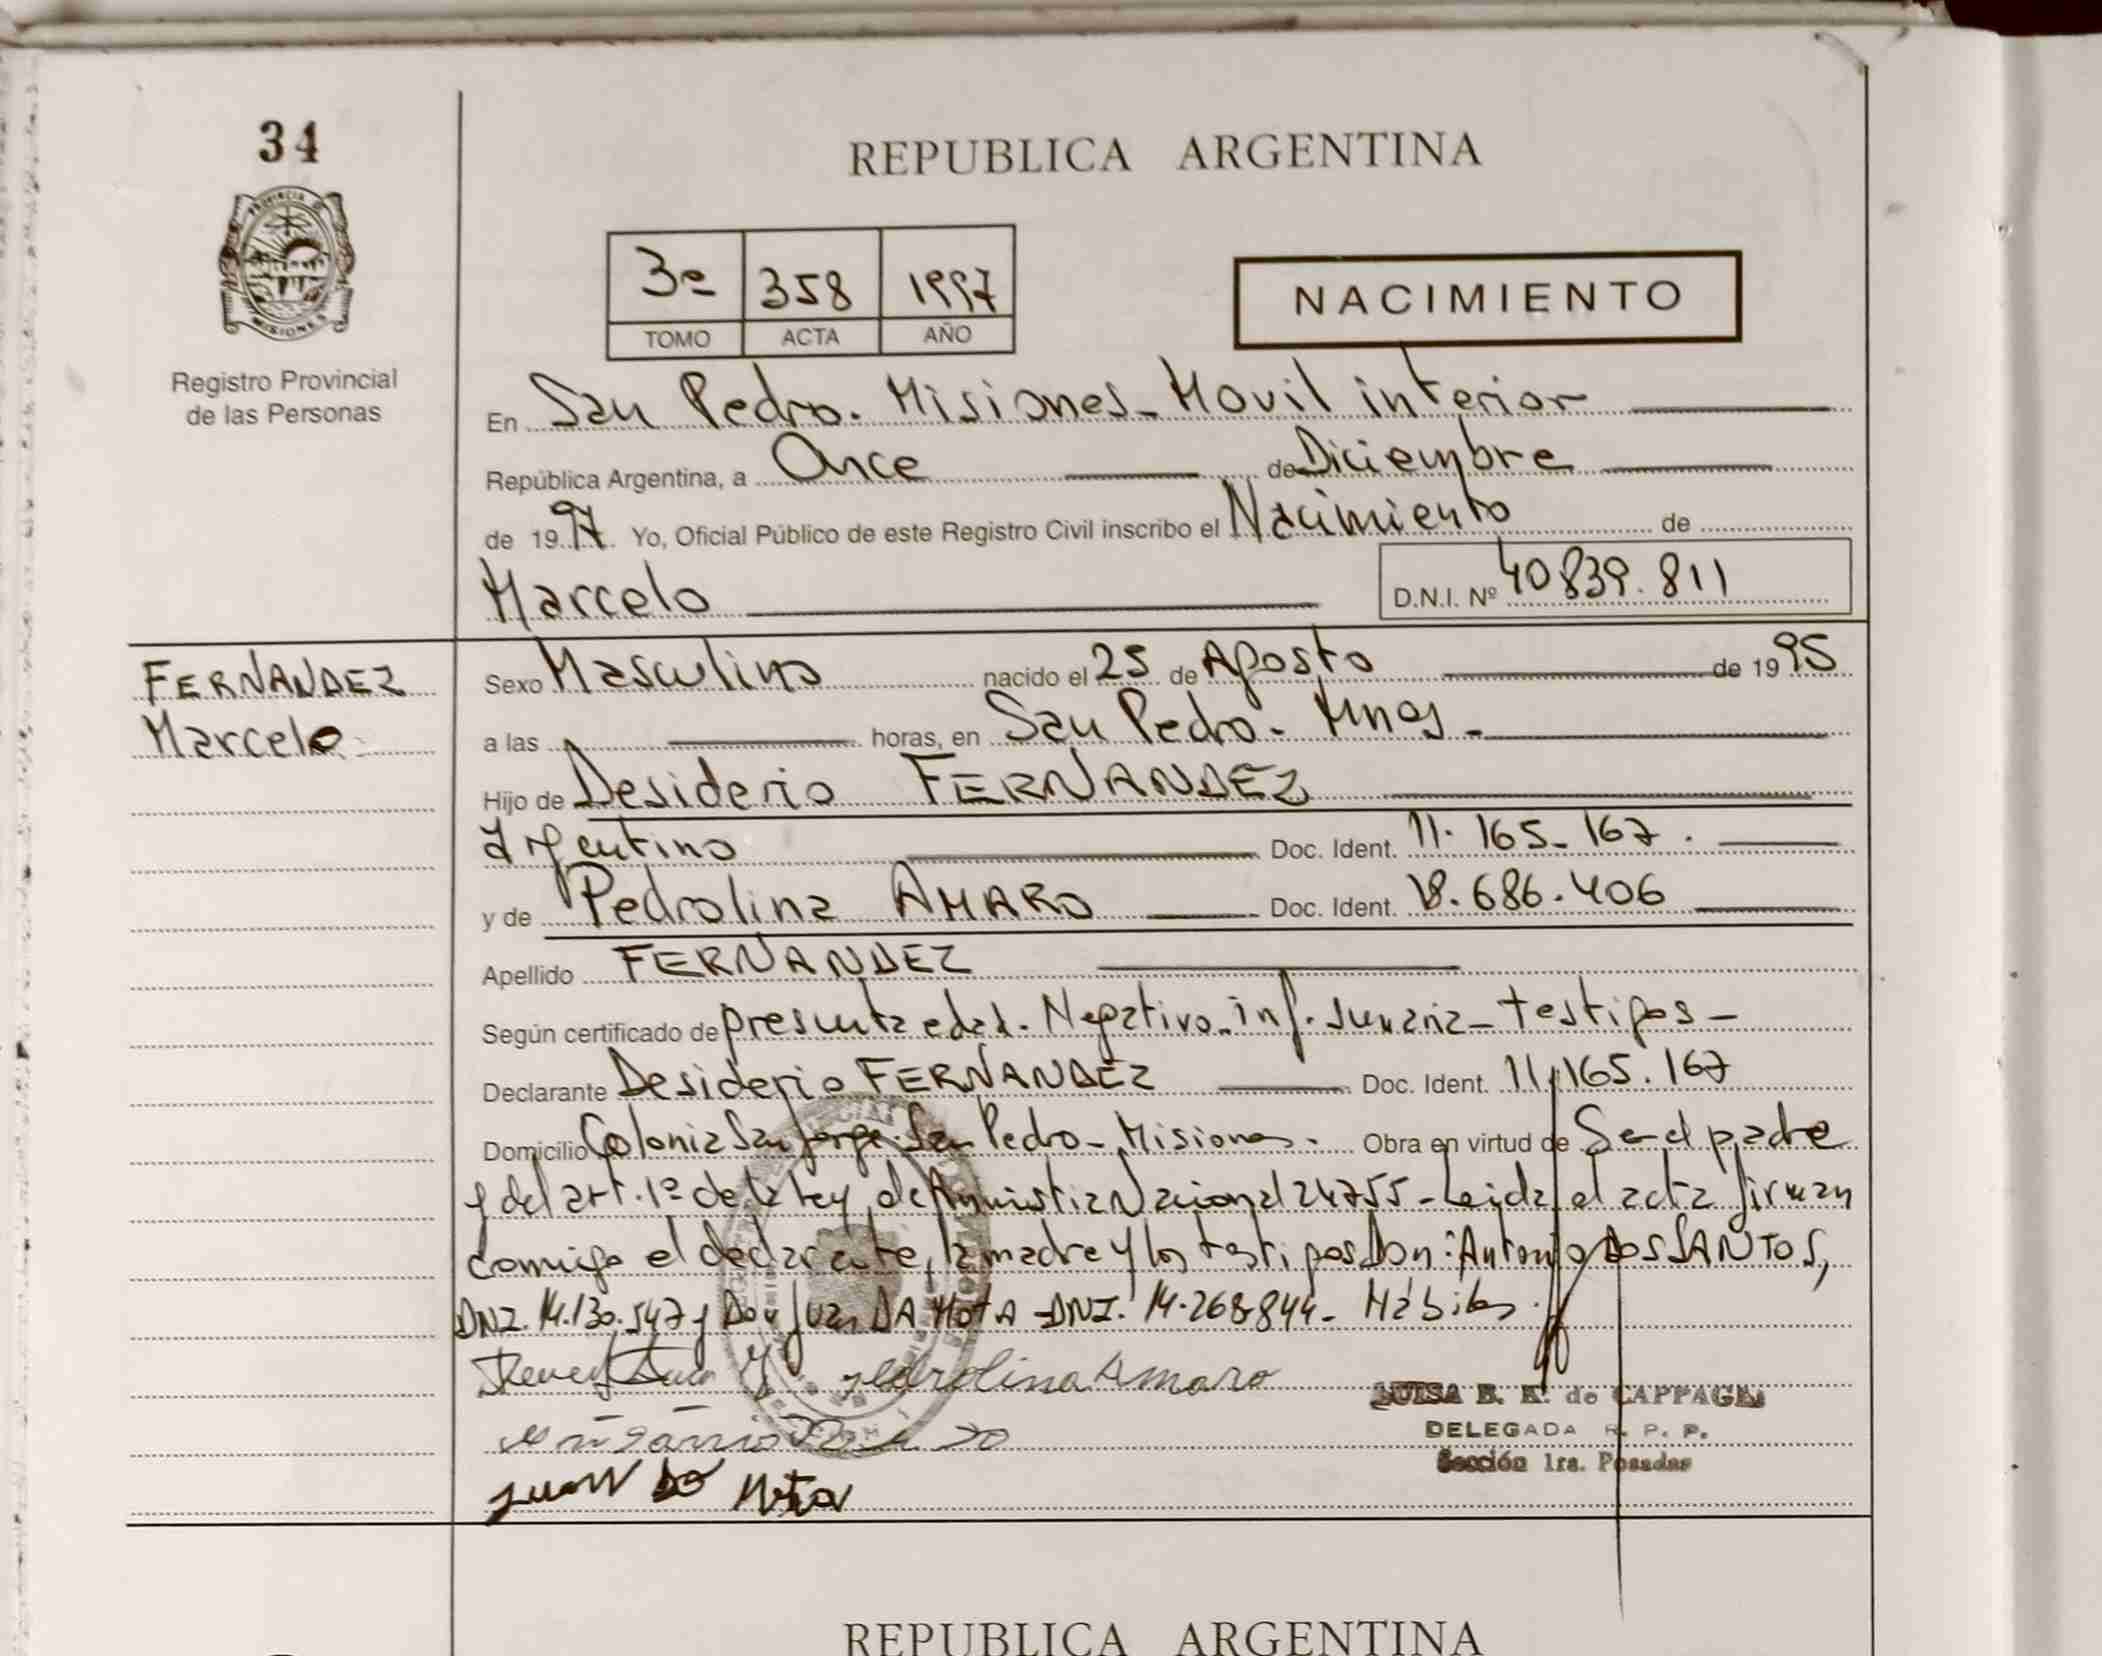 34
REPUBLICA ARGENTINA
PROVINCIA D
MISIONES
Registro Provincial
de las Personas
3º 358 1997
TOMO ACTA AÑO
NACIMIENTO
En San Pedro. Misiones - Movil interior
República Argentina, a Once de Diciembre
de 1997. Yo, Oficial Público de este Registro Civil inscribo el Nacimiento de
Marcelo D.N.I. Nº 40839.811
FERNANDEZ
Marcelo
Sexo Masculino nacido el 25 de Agosto de 1995
a las horas, en San Pedro - Mnes -
Hijo de Desiderio FERNANDEZ
Argentino Doc. Ident. 11.165-167.
y de Pedrolina AMARO Doc. Ident. 18.686.406
Apellido FERNANDEZ
Según certificado de presunta edad. Negativo. inf. sumaria - testigos -
Declarante Desiderio FERNANDEZ Doc. Ident. 11.165.167
Domicilio Colonia San Jorge. San Pedro - Misiones. Obra en virtud de Ser el padre
y del art. 1º de la Ley de Amnistia Nacional 24755 - Leida el acta firman
comigo el declarante, la madre y los testigos Don: Antonio DOS SANTOS,
DNI. 14.130.547 y Don Juan DA MOTA - DNI. 14.268.844 - Hábiles.
Pedrolina Amaro
LUISA B. K. de CAPPAGLI
DELEGADA R. P. P.
Sección 1ra. Posadas
Juan Da Mota
REPUBLICA ARGENTINA